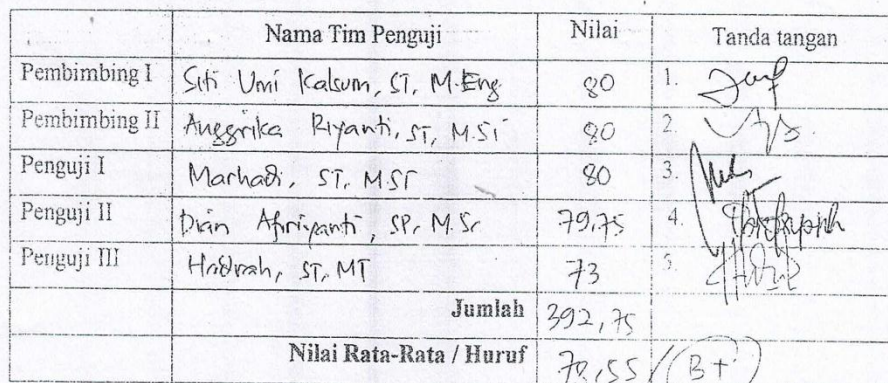 Nama Tim Penguji Nilai Tanda tangan
Pembimbing I Siti Umi Kalsum, ST, M.Eng 80 1.
Pembimbing II Anggrika Riyanti, ST, M.Si 80 2.
Penguji I Marhadi, ST, M.Si 80 3.
Penguji II Dian Afriyanti, SP, M.Si 79,75 4.
Penguji III Hadrah, ST, MT 73 5.
Jumlah 392,75
Nilai Rata-Rata / Huruf 78,55 / B+